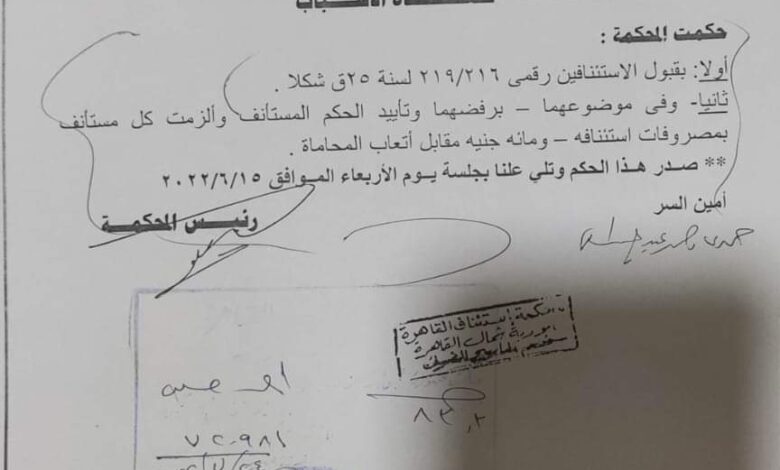 حكمت المحكمة :
أولا: بقبول الاستئنافين رقمى ٢١٩/٢١٦ لسنة ٢٥ق شكلا .
ثانيا- وفى موضوعهما – برفضهما وتأييد الحكم المستأنف وألزمت كل مستأنف
بمصروفات استئنافه – ومائه جنيه مقابل أتعاب المحاماة .
** صدر هذا الحكم وتلي علنا بجلسة يوم الأربعاء الموافق ٢٠٢٢/٦/١٥
أمين السر
رئيس المحكمة
محكمة استئناف القاهرة
مأمورية شمال القاهرة
٨٣٠٢
٧٢٠٩٨١